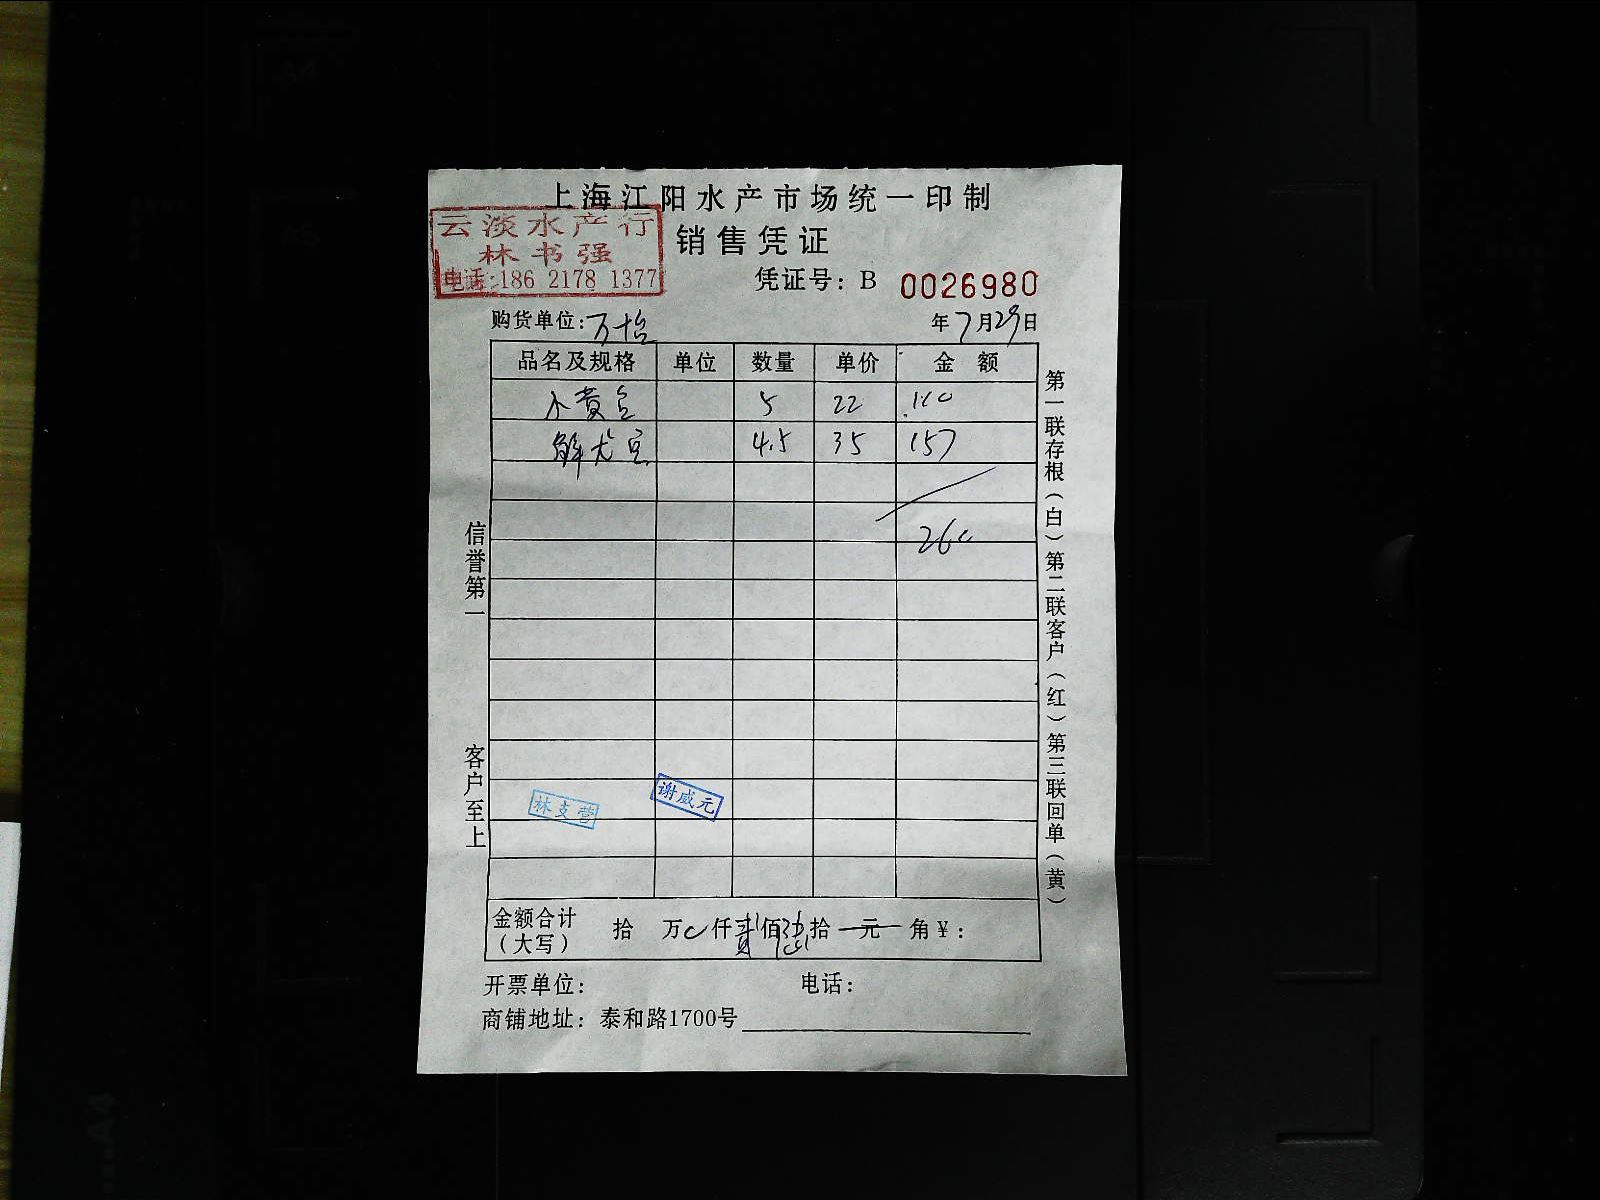 上海江阳水产市场统一印制
云淡水产行
林书强
电话:186 2178 1377
销售凭证
凭证号：B 0026980
购货单位:万怡
年7月29日
品名及规格 单位 数量 单价 金额
小黄鱼 5 22 110
鲜尤鱼 4.5 35 157
260
信誉第一
客户至上
第一联存根（白） 第二联客户（红） 第三联回单（黄）
林支营
谢威元
金额合计（大写） 拾 万 0 仟 贰 佰 陆 拾 元 角￥：
开票单位：
电话：
商铺地址：泰和路1700号